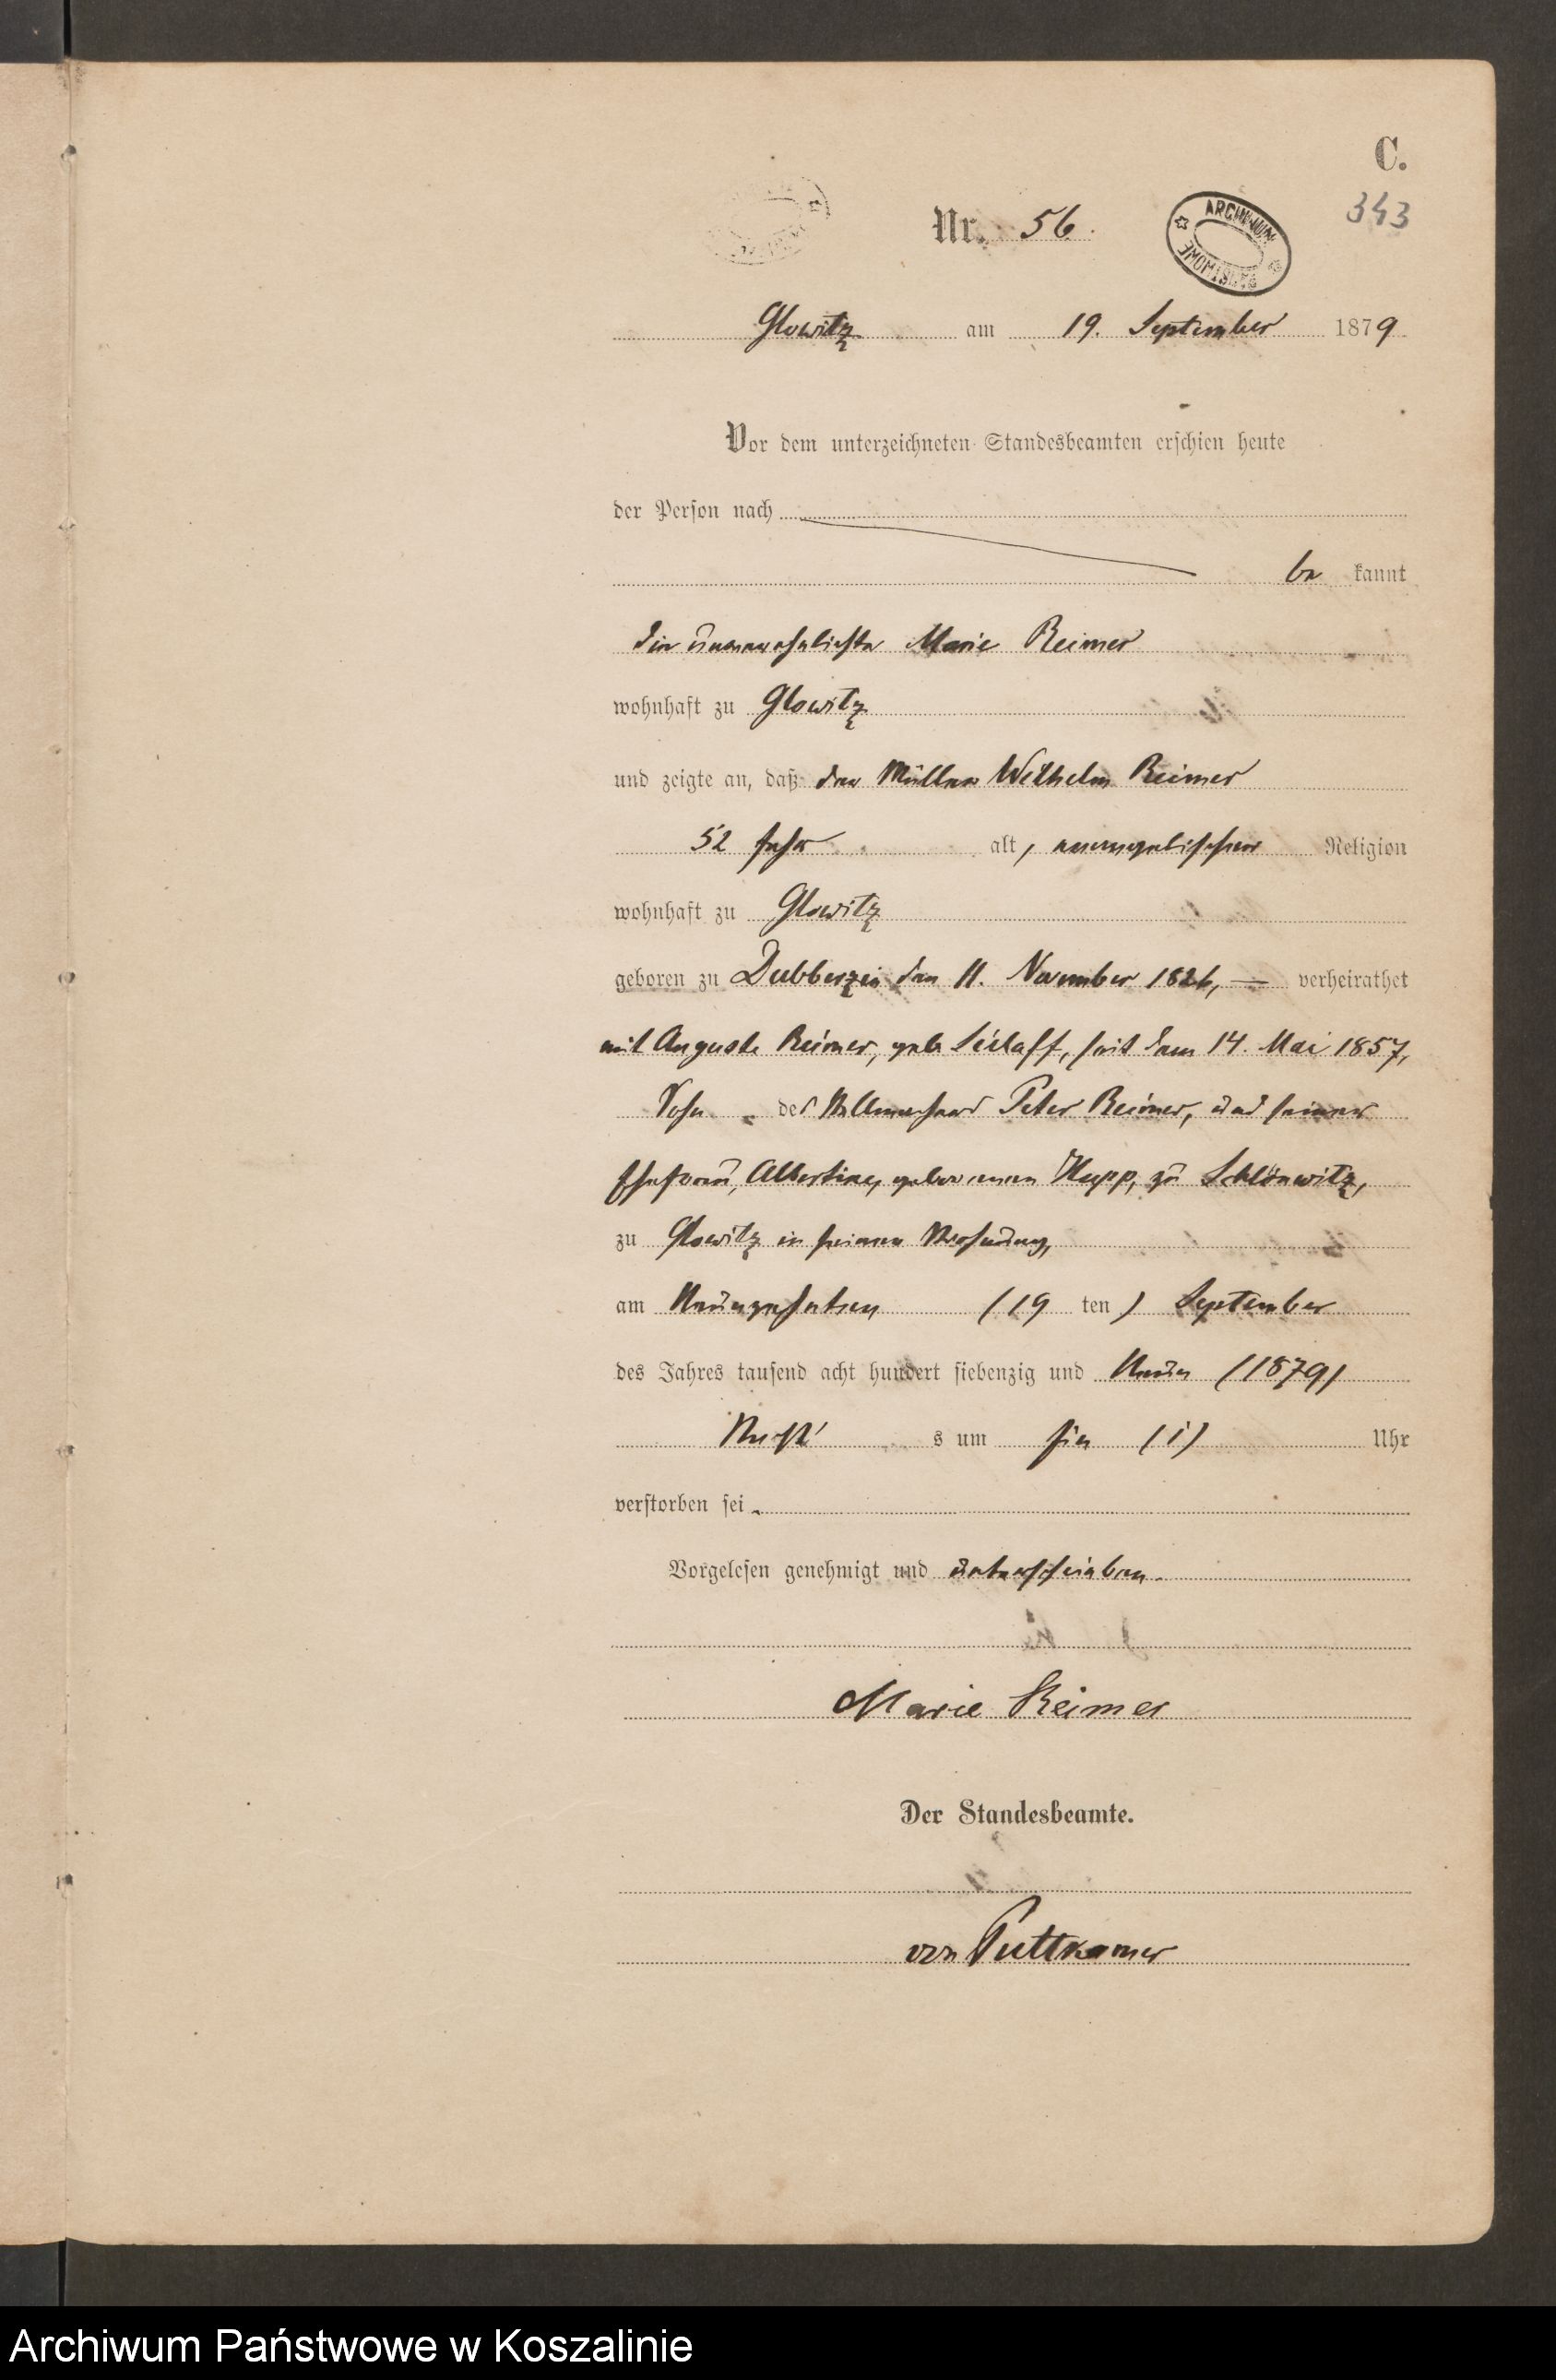 C.
343
Nr. 56.
ARCHIWUM PAŃSTWOWE
Glowitz am 19. September 1879
Vor dem unterzeichneten Standesbeamten erschien heute
der Person nach
be kannt
die unverehelichte Marie Reimer
wohnhaft zu Glowitz
und zeigte an, daß der Müller Wilhelm Reimer
52 Jahr alt, evangelischer Religion
wohnhaft zu Glowitz
geboren zu Dubberzin den 11. November 1826, verheirathet
mit Auguste Reimer, geb. , seit dem 14. Mai 1857,
Sohn des Peter Reimer, und seiner
Ehefrau, Albertine, geborenen Kupp, zu Schlönwitz,
zu Glowitz in seiner Wohnung,
am Neunzehnten (19 ten) September
des Jahres tausend acht hundert siebenzig und Neun (1879)
Nacht s um Ein (1) Uhr
verstorben sei.
Vorgelesen genehmigt und unterschrieben.
Marie Reimer
Der Standesbeamte.
von Puttkamer
Archiwum Państwowe w Koszalinie